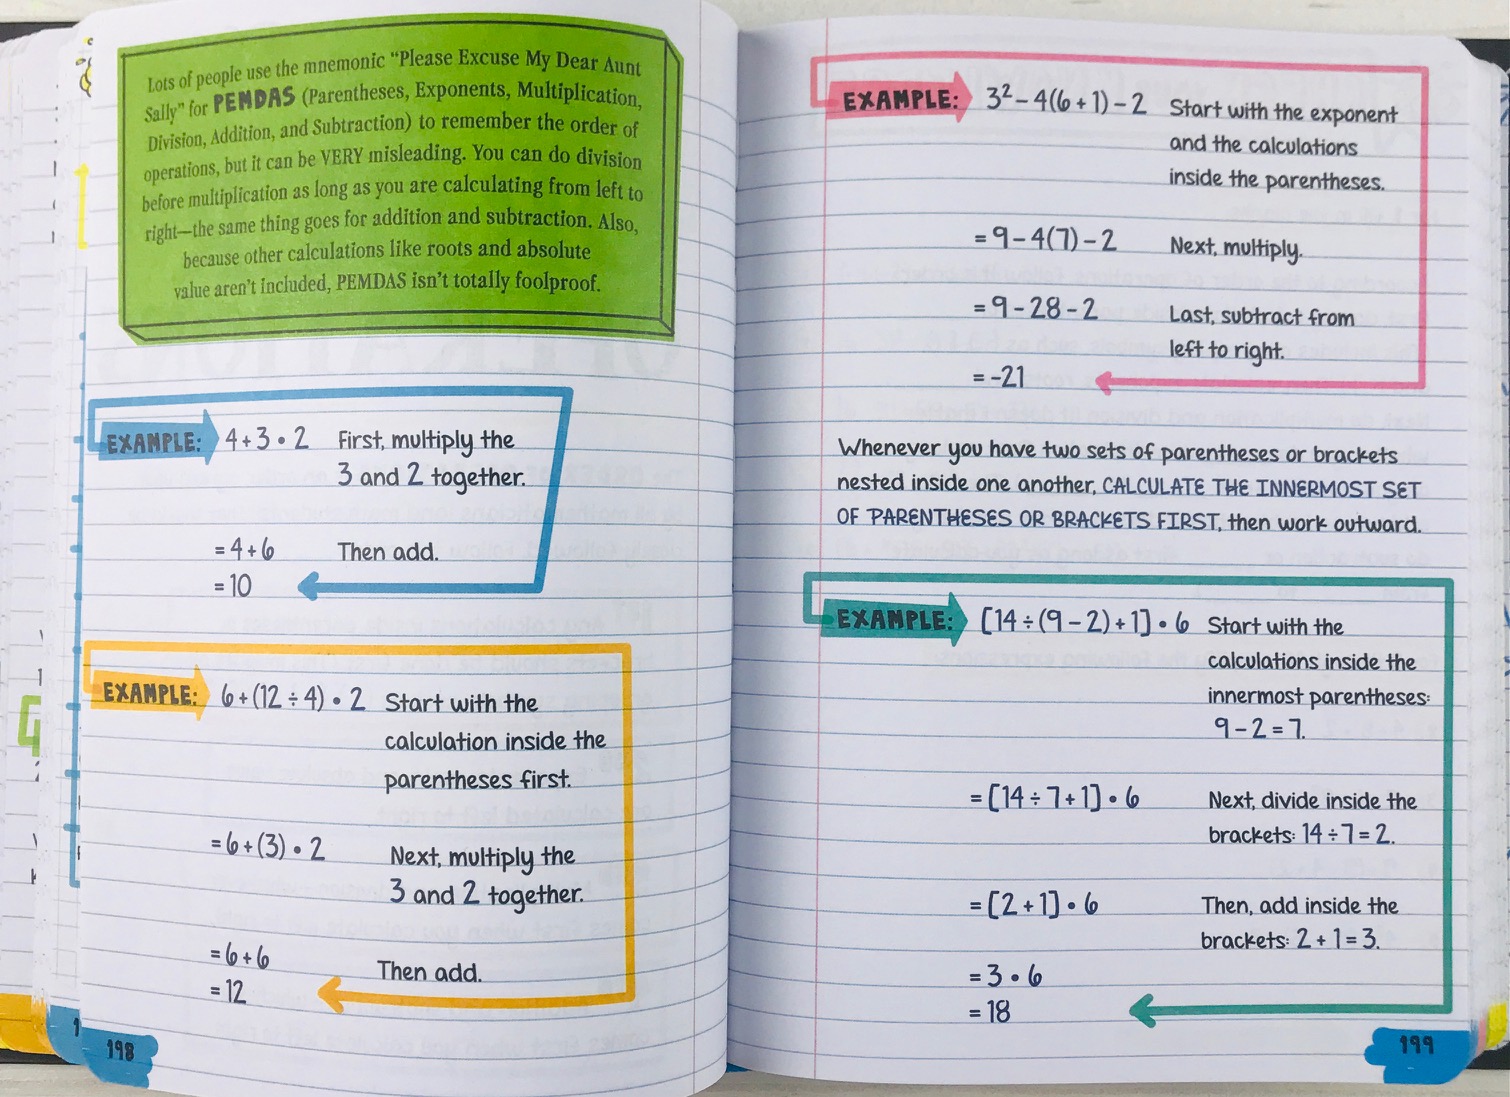 Lots of people use the mnemonic “Please Excuse My Dear Aunt
Sally” for PEMDAS (Parentheses, Exponents, Multiplication,
Division, Addition, and Subtraction) to remember the order of
operations, but it can be VERY misleading. You can do division
before multiplication as long as you are calculating from left to
right—the same thing goes for addition and subtraction. Also,
because other calculations like roots and absolute
value aren’t included, PEMDAS isn’t totally foolproof.
EXAMPLE: 4 + 3 • 2 First, multiply the
3 and 2 together.
= 4 + 6 Then add.
= 10
EXAMPLE: 6 + (12 ÷ 4) • 2 Start with the
calculation inside the
parentheses first.
= 6 + (3) • 2 Next, multiply the
3 and 2 together.
= 6 + 6 Then add.
= 12
198
EXAMPLE: 3² – 4(6 + 1) – 2 Start with the exponent
and the calculations
inside the parentheses.
= 9 – 4(7) – 2 Next, multiply.
= 9 – 28 – 2 Last, subtract from
left to right.
= -21
Whenever you have two sets of parentheses or brackets
nested inside one another, CALCULATE THE INNERMOST SET
OF PARENTHESES OR BRACKETS FIRST, then work outward.
EXAMPLE: [14 ÷ (9 – 2) + 1] • 6 Start with the
calculations inside the
innermost parentheses:
9 – 2 = 7.
= [14 ÷ 7 + 1] • 6 Next, divide inside the
brackets: 14 ÷ 7 = 2.
= [2 + 1] • 6 Then, add inside the
brackets: 2 + 1 = 3.
= 3 • 6
= 18
199